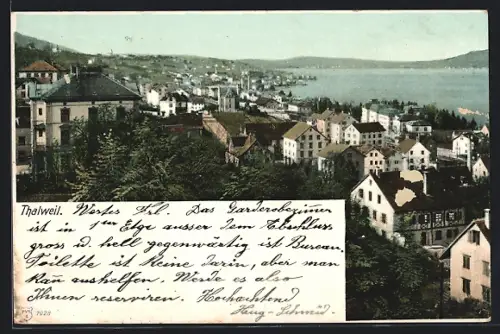 Thalwil. Wertes Frl. Das Garderobezimer
ist in 1ten Etge ausser dem Ebschluss
gross u. hell gegenwärtig ist Bureau.
Toilette ist keine darin, aber man
kan aushelfen. Werde es also
Ihnen reserviren. Hochachtend
Haug-Schmid.
7028